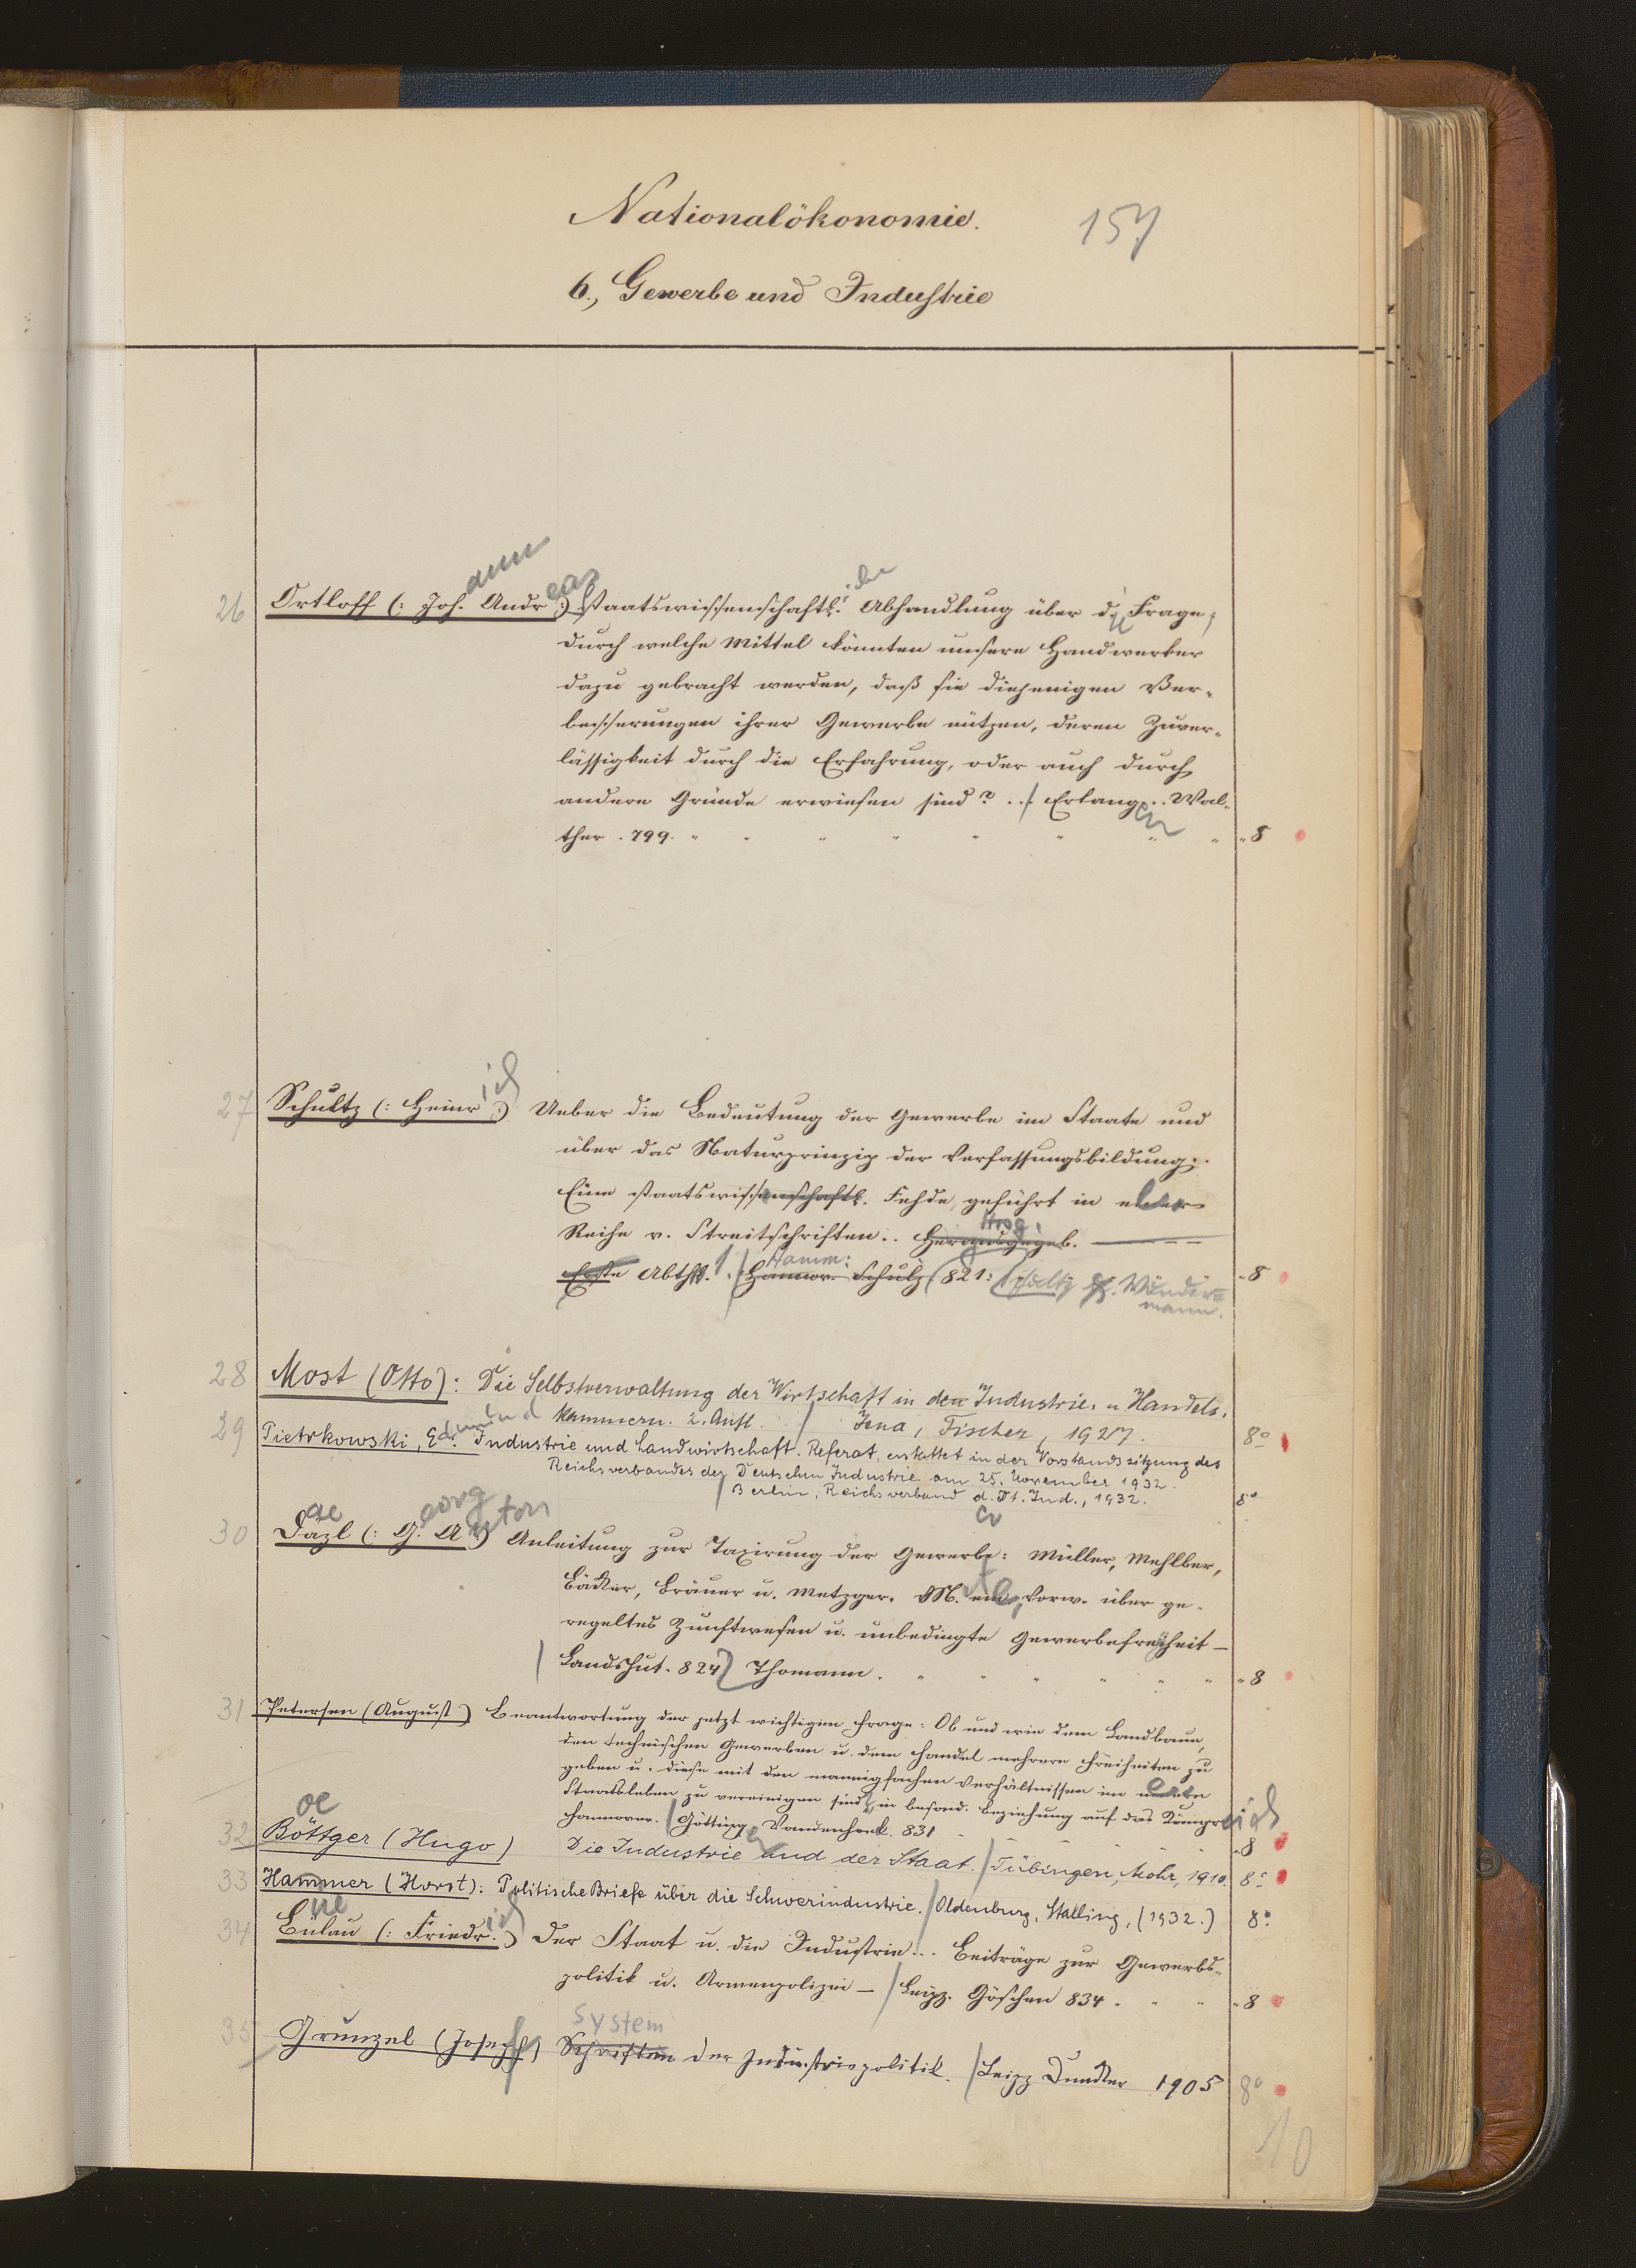 Nationalökonomie.
157
6., Gewerbe und Industrie
26 Ortloff (: Joh.ann Andr.eas :) staatswissenschaftl.iche Abhandlung über d. Frage,
durch welche Mittel könnten unsere Handwerker
dazu gebracht werden, daß sie diejenigen Ver-
besserungen ihrer Gewerbe nützen, deren Zuver-
lässigkeit durch die Erfahrung, oder auch durch
andere Gründe erwiesen sind? .. / Erlang.en Wal-
ther. 799. " 8
27 Schultz (: Heinr.ich :) Ueber die Bedeutung der Gewerbe im Staate und
über das Naturprinzip der Verfassungsbildung.
Eine staatswissenschaftl. Fehde, geführt in einer
Reihe v. Streitschriften.. Herausgegeb. Hrsg.
Erste Abthl. 1. / Hannov. Hamm: Schulz (821: Schultz & Wunder=
mann. " 8
28 Most (Otto): Die Selbstverwaltung der Wirtschaft in den Industrie- u Handels-
kammern. 2. Aufl. / Jena, Fischer, 1927. 8°
29 Pietrkowski, Ed.mund Industrie und Landwirtschaft. Referat, erstattet in der Vorstandssitzung des
Reichsverbandes der Deutschen Industrie am 25. November 1932.
/ Berlin, Reichsverband d. Dt. Ind., 1932. 8°
30 Däzl (: G.eorg A.nton :) Anleitung zur Taxirung der Gewerbe: Müller, Mehlber,
Bäcker, Bräuer u. Metzger. M. ein. Vorw. über ge-
regeltes Zunftwesen u. unbedingte Gewerbefreyheit —
/ Landshut. 824 Thomann. " 8
31 Petersen (August) Beantwortung der jetzt wichtigen Frage: Ob und wie dem Landbaue,
den technischen Gewerben u. dem Handel mehrere Freiheiten zu
geben u. diese mit den mannigfachen Verhältnissen im
Staatsleben zu vereinigen sind, in besond. Beziehung auf das Königreich
Hannover. / Götting.en Vandenhoek. 831 " 8
32 Böttger (Hugo) Die Industrie und der Staat. / Tübingen, Mohr, 1910. 8°
33 Hammer (Horst): Politische Briefe über die Schwerindustrie. / Oldenburg, Stalling, (1932.) 8°
34 Bülau (: Friedr.ich :) Der Staat u. die Industrie... Beiträge zur Gewerbs-
politik u. Armenpolizei — / Leipz. Göschen 834. " 8
35 Grunzel (Joseph) Schriften System der Industriepolitik. / Leipz Duncker 1905 8°
10